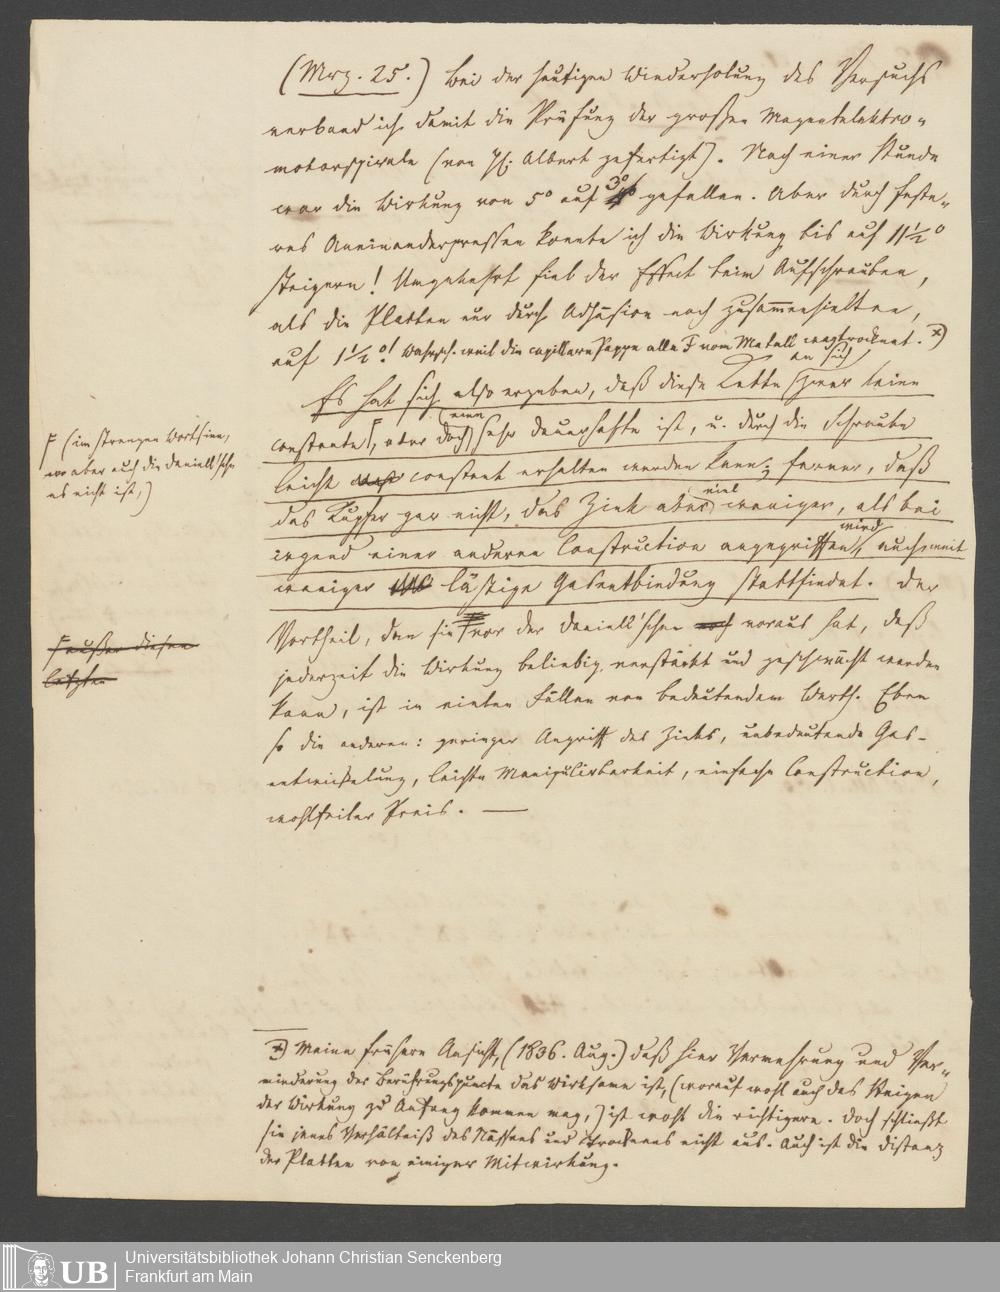 (Mrz. 25.) Bei der heutigen Wiederholung des Versuchs
verband ich damit die Prüfung der großen Magnetelektro-
motorspirale (von H. Albert gefertigt). Nach einer Stunde
war die Wirkung von 5° auf 3° gefallen. Aber durch feste-
res Aneinanderpressen konnte ich die Wirkung bis auf 11½°
steigern! Umgekehrt fiel der Effect beim Aufschrauben,
als die Platten nur durch Adhäsion noch zusammenhielten,
auf 1½°! Wahrsch. weil die capillare Pappe alle F vom Metall wegtrocknet. *)
Es hat sich also ergeben, daß diese Kette an sich zwar keine
constante F, aber doch eine sehr dauerhafte ist, u. durch die Schraube
leicht constant erhalten werden kann; ferner, daß
das Kupfer gar nicht, das Zink aber viel weniger, als bei
irgend einer anderen Construction angegriffen wird, auch weit
weniger lästige Gasentbindung stattfindet. Der
Vortheil, den sie vor der Daniell'schen noch voraus hat, daß
jederzeit die Wirkung beliebig verstärkt und geschwächt werden
kann, ist in vielen Fällen von bedeutendem Werth. Eben
so die anderen: geringer Angriff des Zinks, unbedeutende Gas-
entwickelung, leichte Manipulirbarkeit, einfache Construction,
wohlfeiler Preis. —
F (im strengen Wortsinn,
wo aber auch die Daniell'sche
es nicht ist,)
F außer diesen
letzten
*) Meine frühere Ansicht, (1836. Aug.) daß hier Vermehrung und Ver-
minderung der Berührungspuncte das Wirksame ist, (worauf wohl auch das Steigen
der Wirkung zu Anfang kommen mag,) ist wohl die richtigere. Doch schließt
sie jenes Verhältniß des Nassens und Trocknens nicht aus. Auch ist die Distanz
der Platten von einiger Mitwirkung.
UB
Universitätsbibliothek Johann Christian Senckenberg
Frankfurt am Main